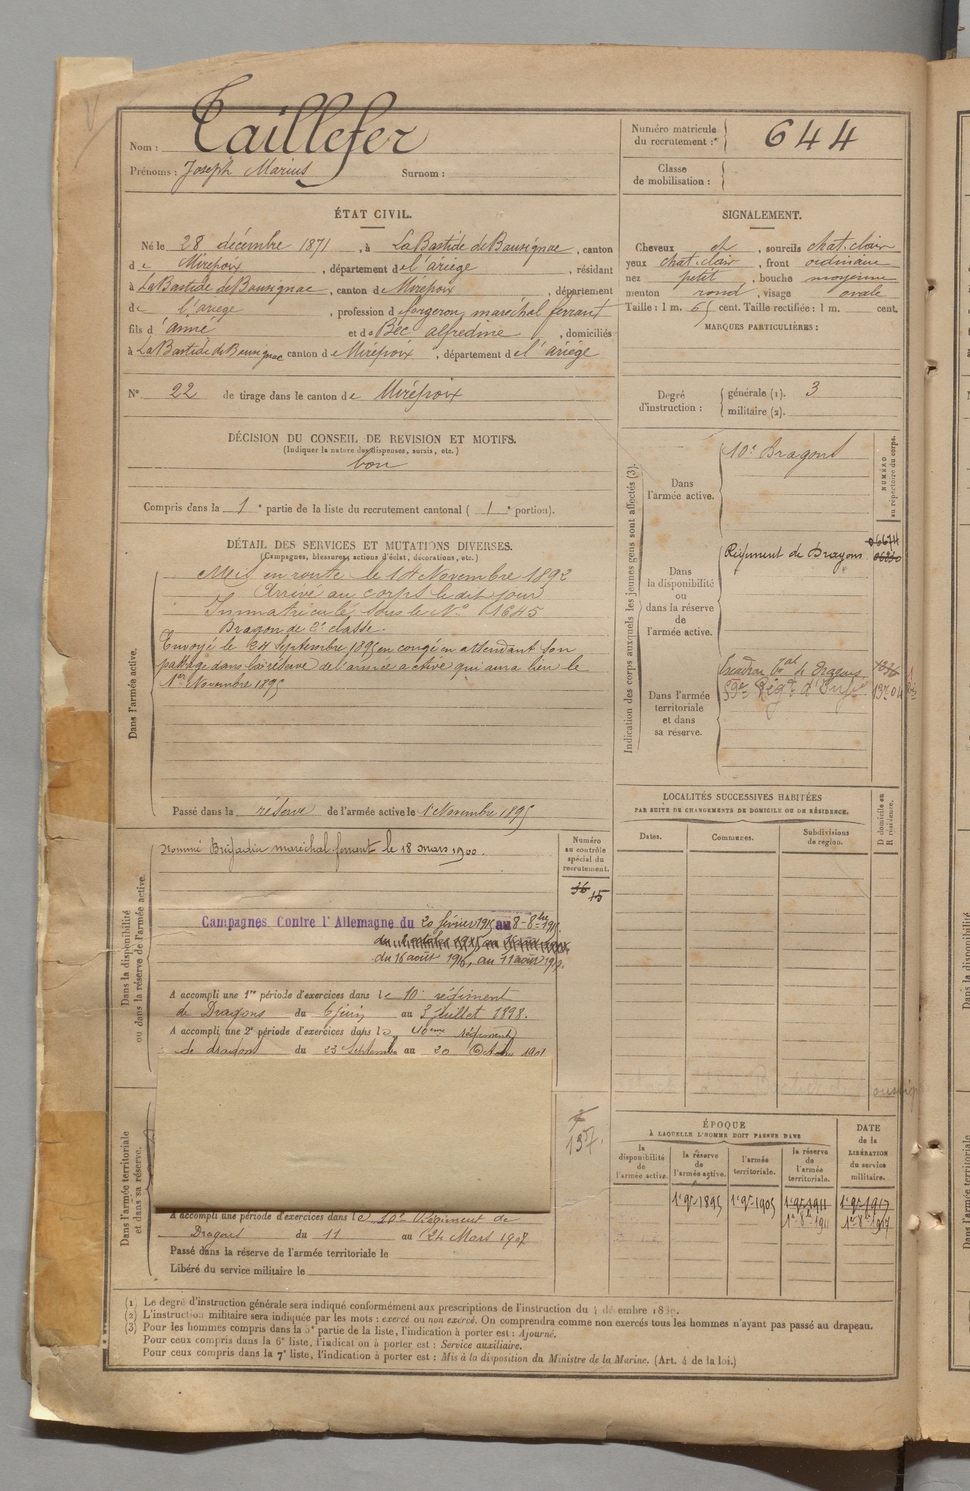 Nom : Taillefer
Prénoms : Joseph Marius Surnom :
Numéro matricule
du recrutement : 644
Classe
de mobilisation :
ÉTAT CIVIL.
Né le 28 décembre 1871, à La Bastide de Bousignac, canton
de Mirepoix, département de l'ariège, résidant
à La Bastide de Bousignac, canton de Mirepoix, département
de l'ariège, profession de forgeron, maréchal ferrant
fils d'aimé et de Bec alfredine, domiciliés
à La Bastide de Bousignac canton de Mirepoix, département de l'ariège
N° 22 de tirage dans le canton de Mirepoix
DÉCISION DU CONSEIL DE REVISION ET MOTIFS.
(Indiquer la nature des dispenses, sursis, etc.)
bon
Compris dans la 1e partie de la liste du recrutement cantonal ( 1e portion).
SIGNALEMENT.
Cheveux et, sourcils chat. clair
yeux chat. clair, front ordinaire
nez petit, bouche moyenne
menton rond, visage ovale
Taille : 1 m. 65 cent. Taille rectifiée : 1 m. cent.
MARQUES PARTICULIÈRES :
Degré
d'instruction :
générale (1). 3
militaire (2).
DÉTAIL DES SERVICES ET MUTATIONS DIVERSES.
(Campagnes, blessures, actions d'éclat, décorations, etc.)
Dans l'armée active.
Mis en route le 14 Novembre 1892
Arrivé au corps le dit jour
Immatriculé sous le N° 1645
Dragon de 2e classe.
Envoyé le 24 Septembre 1895 en congé en attendant son
passage dans la réserve de l'armée active qui aura lieu le
1er Novembre 1895
Passé dans la réserve de l'armée active le 1 Novembre 1895
Indication des corps auxquels les jeunes gens sont affectés (3).
NUMÉRO
au répertoire du corps.
Dans
l'armée active.
10e Dragons
Dans
la disponibilité
ou
dans la réserve
de
l'armée active.
Régiment de Dragons
Dans l'armée
territoriale
et dans
sa réserve.
Escadron tal de Dragons
59e Régt d'Infie
Dans la disponibilité
ou dans la réserve de l'armée active.
Nommé Brigadier maréchal ferrant le 18 mars 1900.
Numéro
au contrôle
spécial du
recrutement.
36 15
Campagnes Contre l'Allemagne du 20 février 1915 au 8-8bre 1915.
du 16 août 1916, au 11 août 1917.
A accompli une 1re période d'exercices dans le 10e régiment
de Dragons du 6 juin au 3 Juillet 1898.
A accompli une 2e période d'exercices dans le 10eme régiment
de dragons du 23 Septembre au 20 Octobre 1901
LOCALITÉS SUCCESSIVES HABITÉES
PAR SUITE DE CHANGEMENTS DE DOMICILE OU DE RÉSIDENCE.
Dates. Communes. Subdivisions
de région.
D domicile ou
R résidence.
Dans l'armée territoriale
et dans sa réserve.
A accompli une période d'exercices dans le 10e Régiment de
Dragons du 11 au 24 Mars 1907
Passé dans la réserve de l'armée territoriale le
Libéré du service militaire le
ÉPOQUE
À LAQUELLE L'HOMME DOIT PASSER DANS
la
disponibilité
de
l'armée active.
la réserve
de
l'armée active.
l'armée
territoriale.
la réserve
de
l'armée
territoriale.
DATE
de la
LIBÉRATION
du service
militaire.
1er 9bre 1895 1er 9bre 1905 1er 9bre 1911 1er 9bre 1917
1er 8bre 1911 1er 8bre 1917
(1) Le degré d'instruction générale sera indiqué conformément aux prescriptions de l'instruction du 4 décembre 1889.
(2) L'instruction militaire sera indiquée par les mots : exercé ou non exercé. On comprendra comme non exercés tous les hommes n'ayant pas passé au drapeau.
(3) Pour les hommes compris dans la 5e partie de la liste, l'indication à porter est : Ajourné.
Pour ceux compris dans la 6e liste, l'indication à porter est : Service auxiliaire.
Pour ceux compris dans la 7e liste, l'indication à porter est : Mis à la disposition du Ministre de la Marine. (Art. 4 de la loi.)